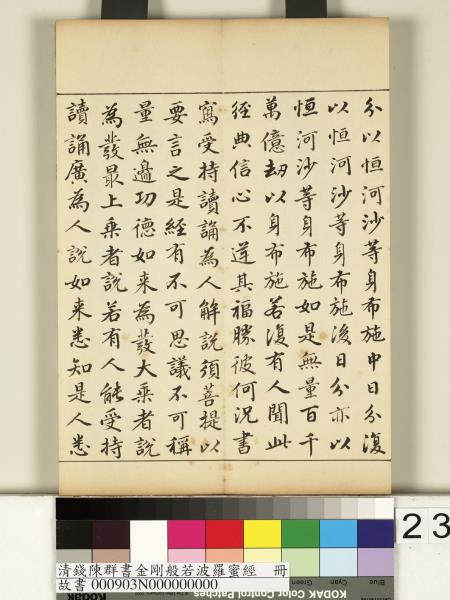 分以恒河沙等身布施中日分復
以恒河沙等身布施後日分亦以
恒河沙等身布施如是無量百千
萬億劫以身布施若復有人聞此
經典信心不逆其福勝彼何況書
寫受持讀誦為人解說須菩提以
要言之是經有不可思議不可稱
量無邊功德如來為發大乘者說
為發最上乘者說若有人能受持
讀誦廣為人說如來悉知是人悉
23
清錢陳群書金剛般若波羅蜜經 冊
故書 000903N000000000
Blue Cyan Green
KODAK Color Control Patches